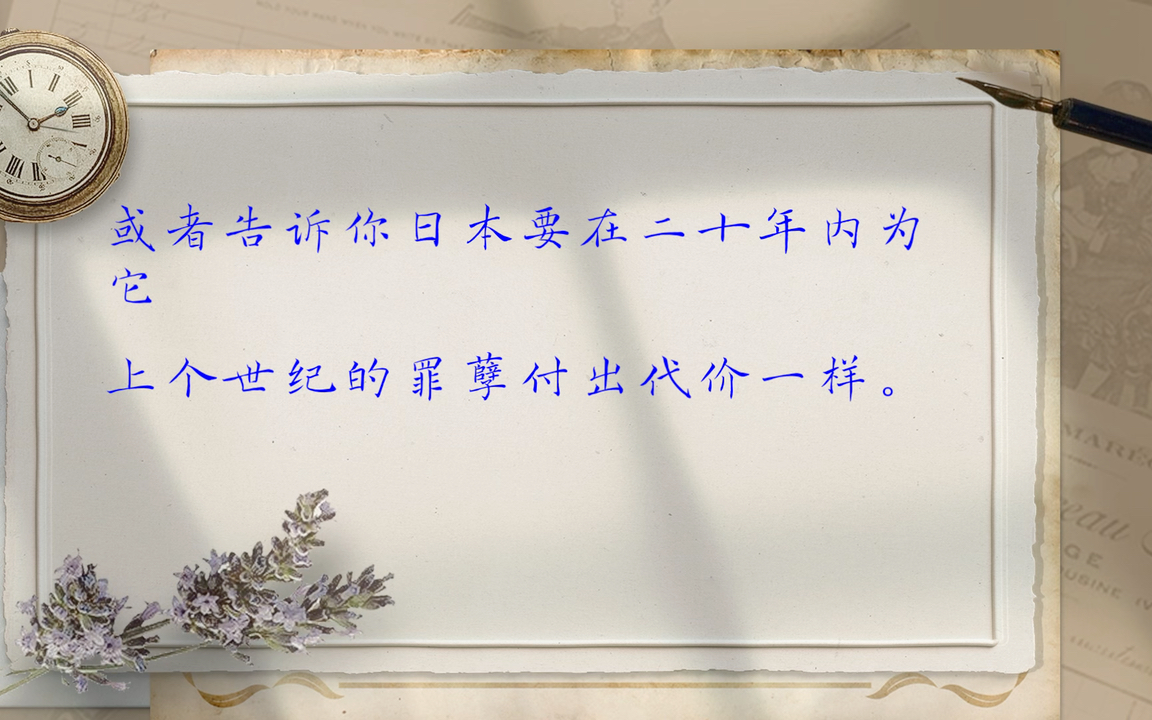 或者告诉你日本要在二十年内为
它
上个世纪的罪孽付出代价一样。